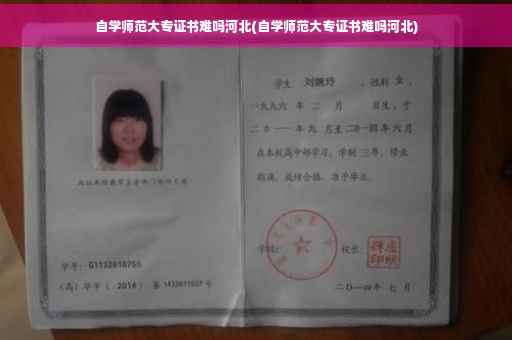 自学师范大专证书难吗河北(自学师范大专证书难吗河北)
学生 刘婉玲 ，性别 女 ，
一九九六 年 二 月 日生，于
二〇一一年九 月至二〇一四年 六 月
在本校高中部学习，学制 三年，修业
期满，成绩合格，准予毕业。
学号：G1132010755
学校： 校长：
(高)毕字 ( 2014 ) 第 1432011027 号
二〇一四年 七 月